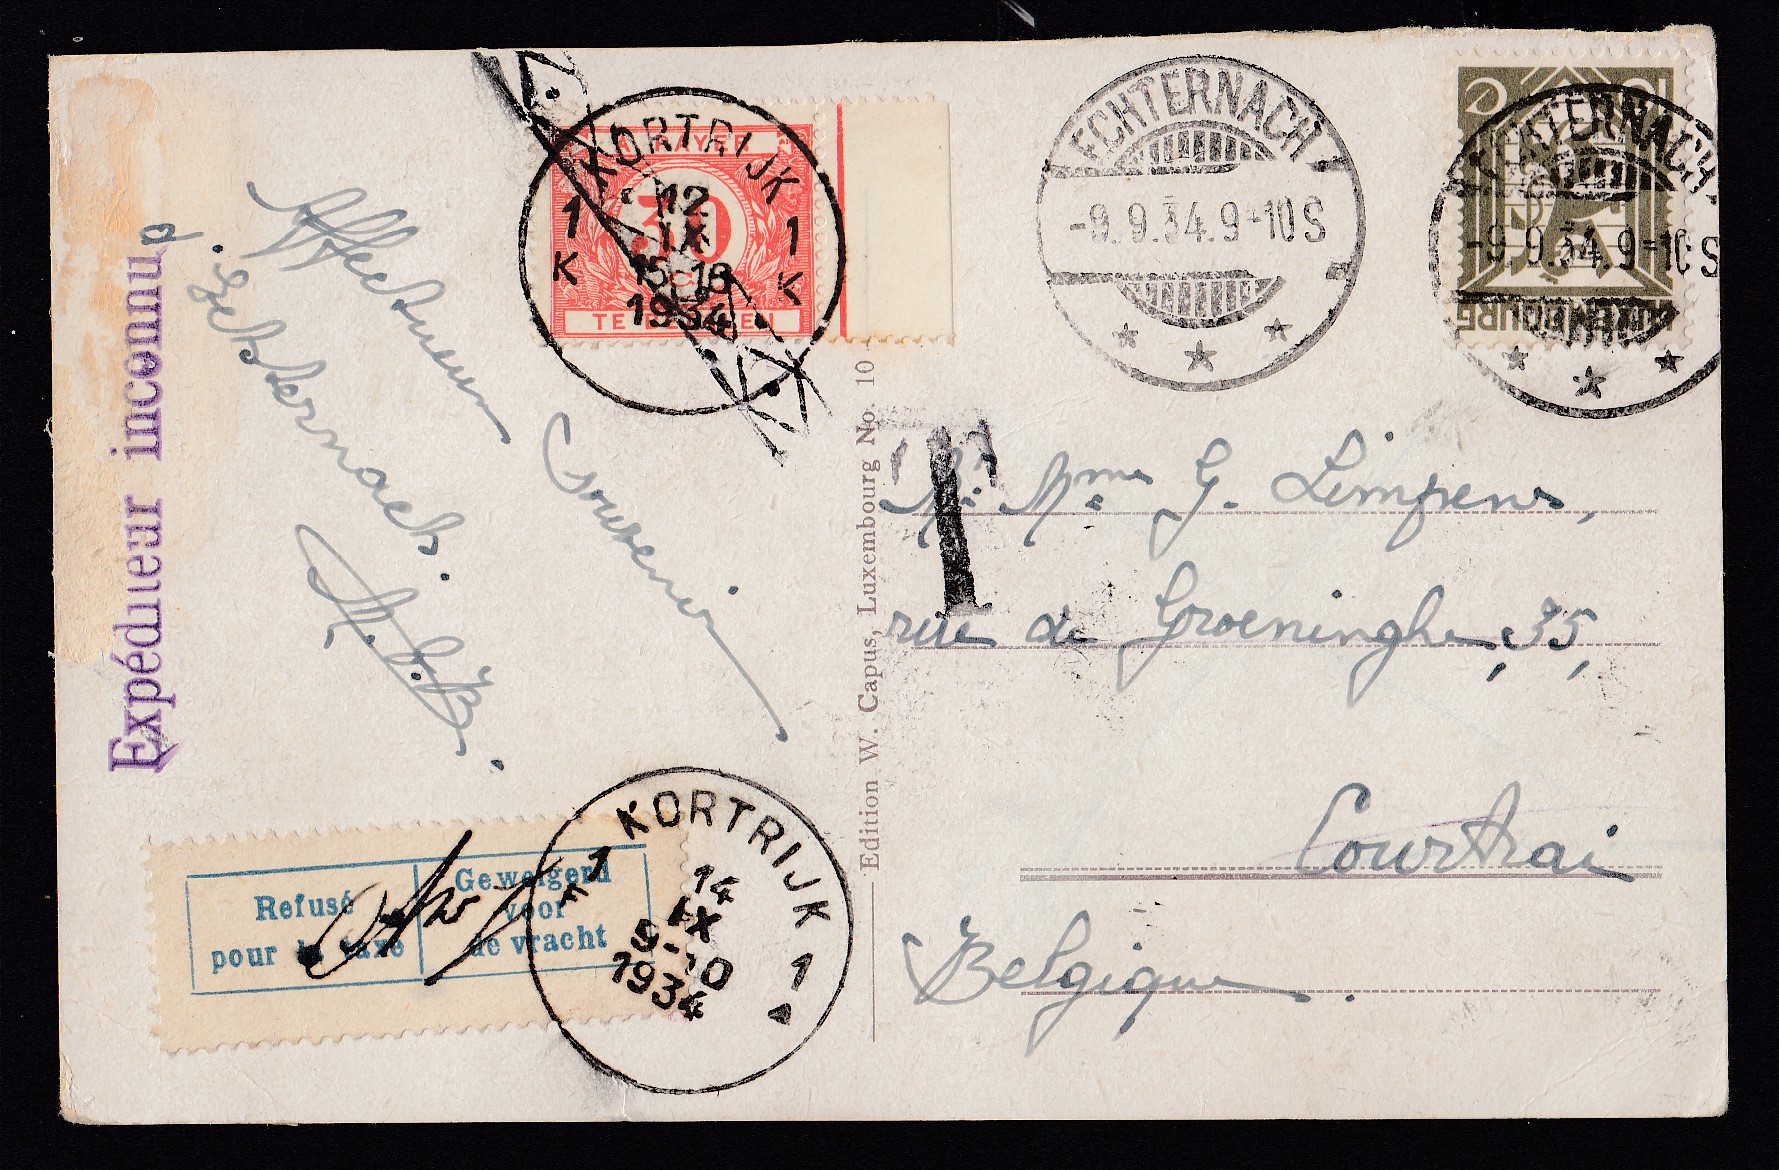 Expéditeur inconnu
Affectueux
Souvenir
d'Echternach.
KORTRIJK
1 1
K K
12
IX
15-16
1934
A PAYER
30
TE BETALEN
ECHTERNACH
-9.9.34.9-10S
ECHTERNACH
-9.9.34.9-10S
LUXEMBOURG
10
T
Mr. Mme G. Limpens,
rue de Groeninghe, 35,
Courtrai
Belgique.
Edition W. Capus, Luxembourg No. 10
Refusé
pour la taxe
Geweigerd
voor
de vracht
KORTRIJK
1 1
F
14
IX
9-10
1934